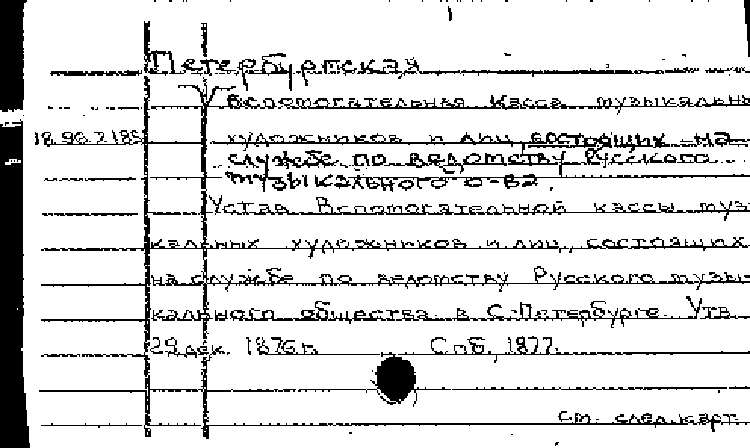 Петербургская
Вспомогательная касса музыкальны
18.96.2.185
художников и лиц, состоящих на
службе по ведомству Русского
музыкального о-ва.
Устав Вспомогательной кассы музы
кальных художников и лиц, состоящих
на службе по ведомству Русского музы
кального общества в С.-Петербурге. Утв.
29 дек. 1876 г. Спб, 1877.
См. след. карт.